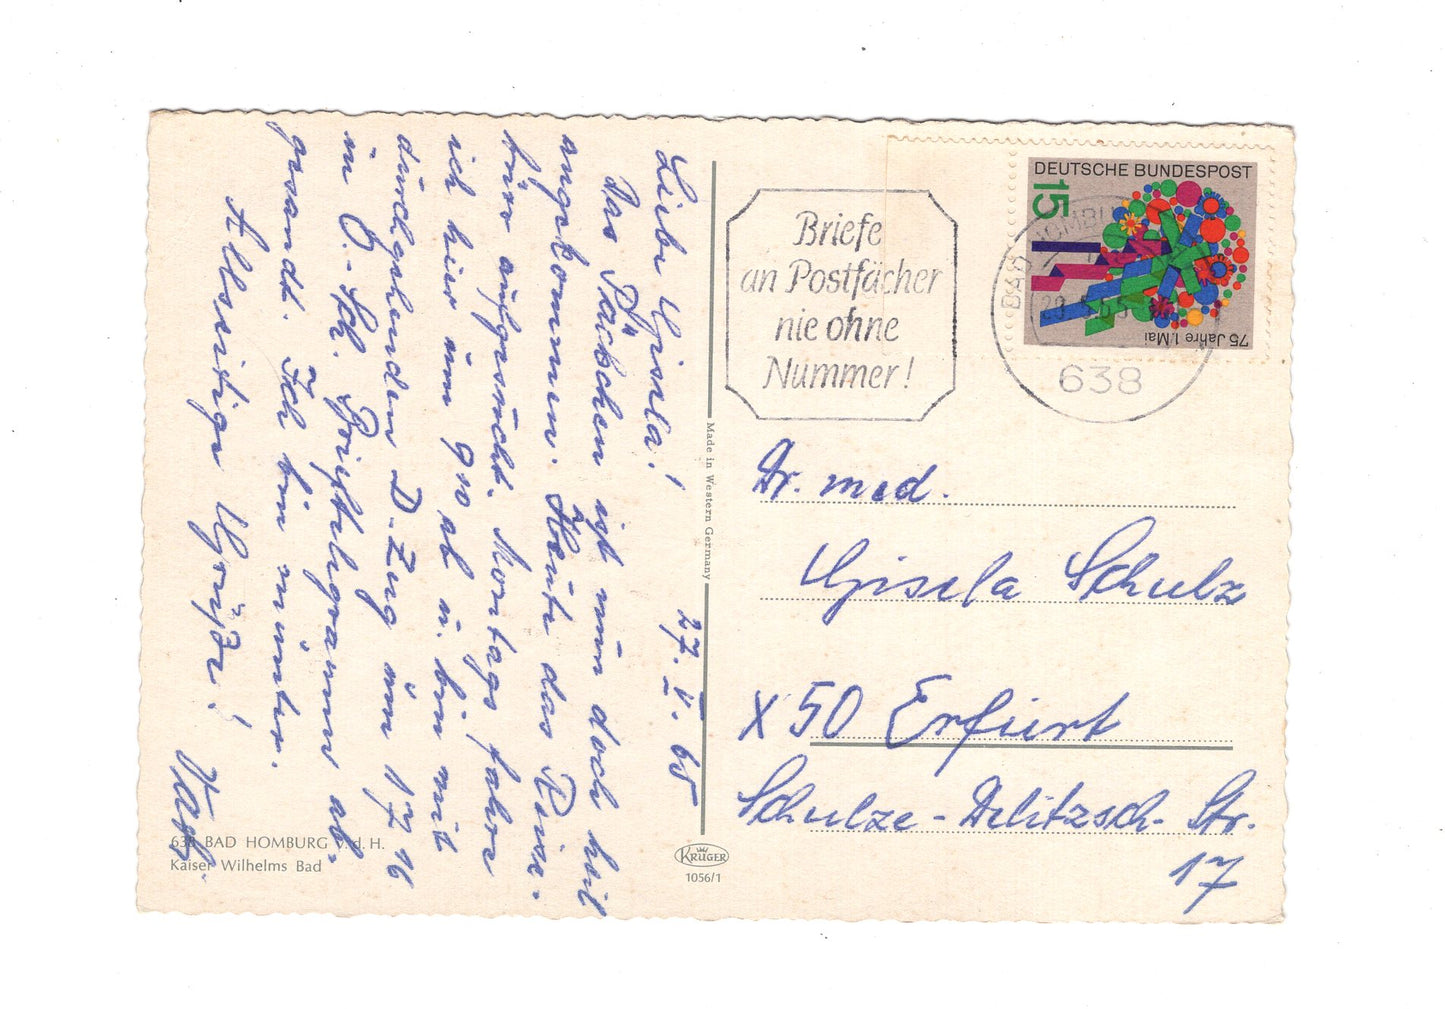 Liebe Gisela!
27. V. 65
Das Päckchen ist nun doch heil
angekommen. Heute das Reise-
büro aufgesucht. Montags fahre
ich hier um 9 10 ab u. bin mit
durchgehenden D.Zug um 17 16
in Ö.-Sch. Brieftelegramm ab-
gesandt. Ich bin munter.
Allseitige Grüße!
638 BAD HOMBURG v. d. H.
Kaiser Wilhelms Bad
Made in Western Germany
KRÜGER
1056/1
Briefe
an Postfächer
nie ohne
Nummer!
DEUTSCHE BUNDESPOST
15
75 Jahre 1. Mai
BAD HOMBU
638
Dr. med.
Gisela Schulz
X 50 Erfurt
Schulze-Delitzsch-Str.
17